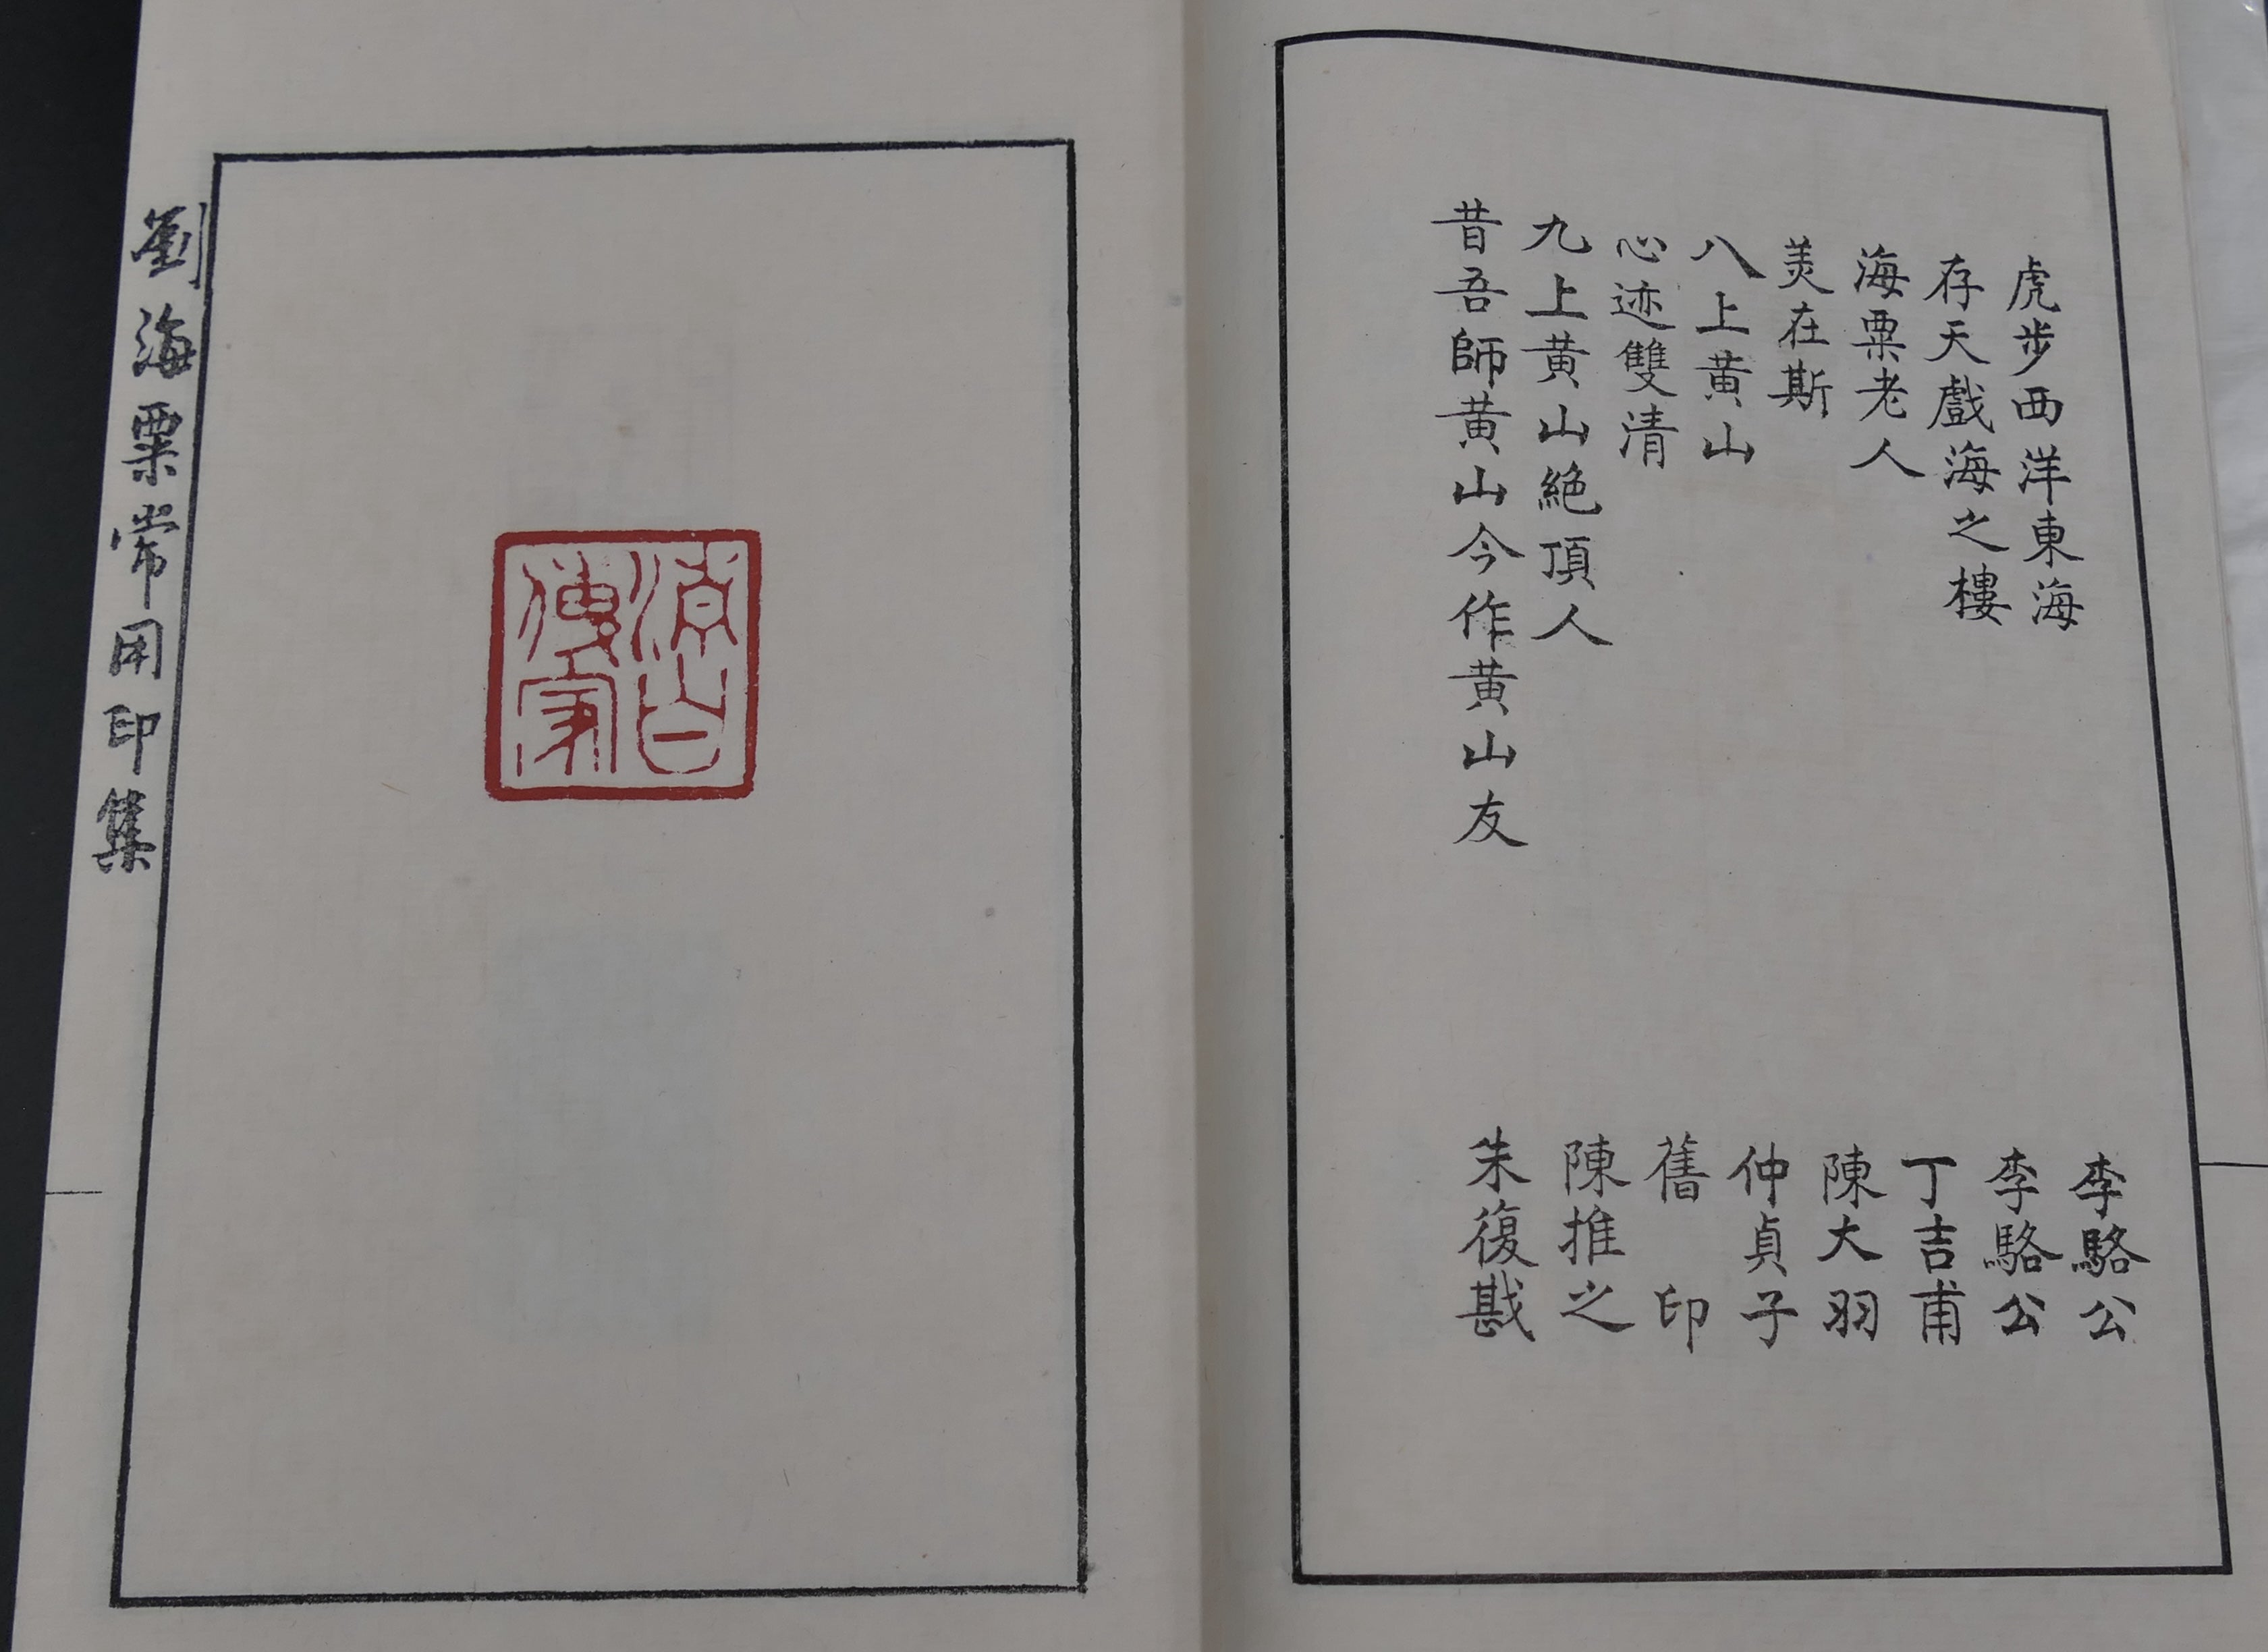 虎步西洋東海 李駱公
存天戲海之樓 李駱公
海粟老人 丁吉甫
美在斯 陳大羽
八上黄山 仲貞子
心迹雙清 舊印
九上黄山絕頂人 陳推之
昔吾師黄山今作黄山友 朱復戡
劉海粟常用印集